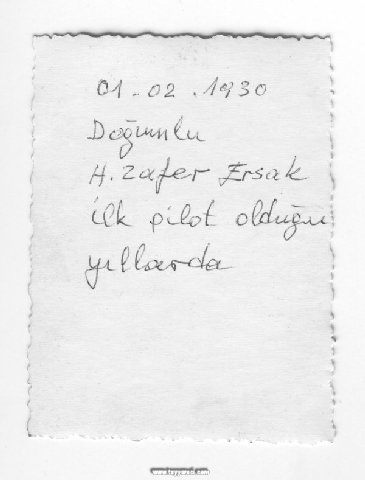 01-02.1930
Doğumlu
H. Zafer Ersak
ilk pilot olduğu
yıllarda